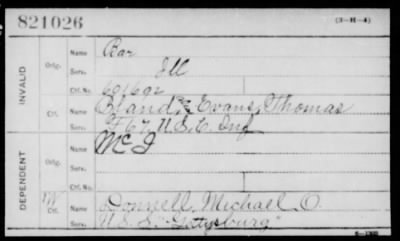 821026
(3-H-4)
INVALID
Orig.
Name Bar
Serv. Ill
Ctf. No. 601692
Ctf.
Name Bland, Evans, Thomas
Serv. F 67, U.S.C. Inf
DEPENDENT
Orig.
Name McI
Serv.
Ctf. No.
W
Ctf.
Name Donnell, Michael O.
Serv. U.S.S. "Gettysburg"